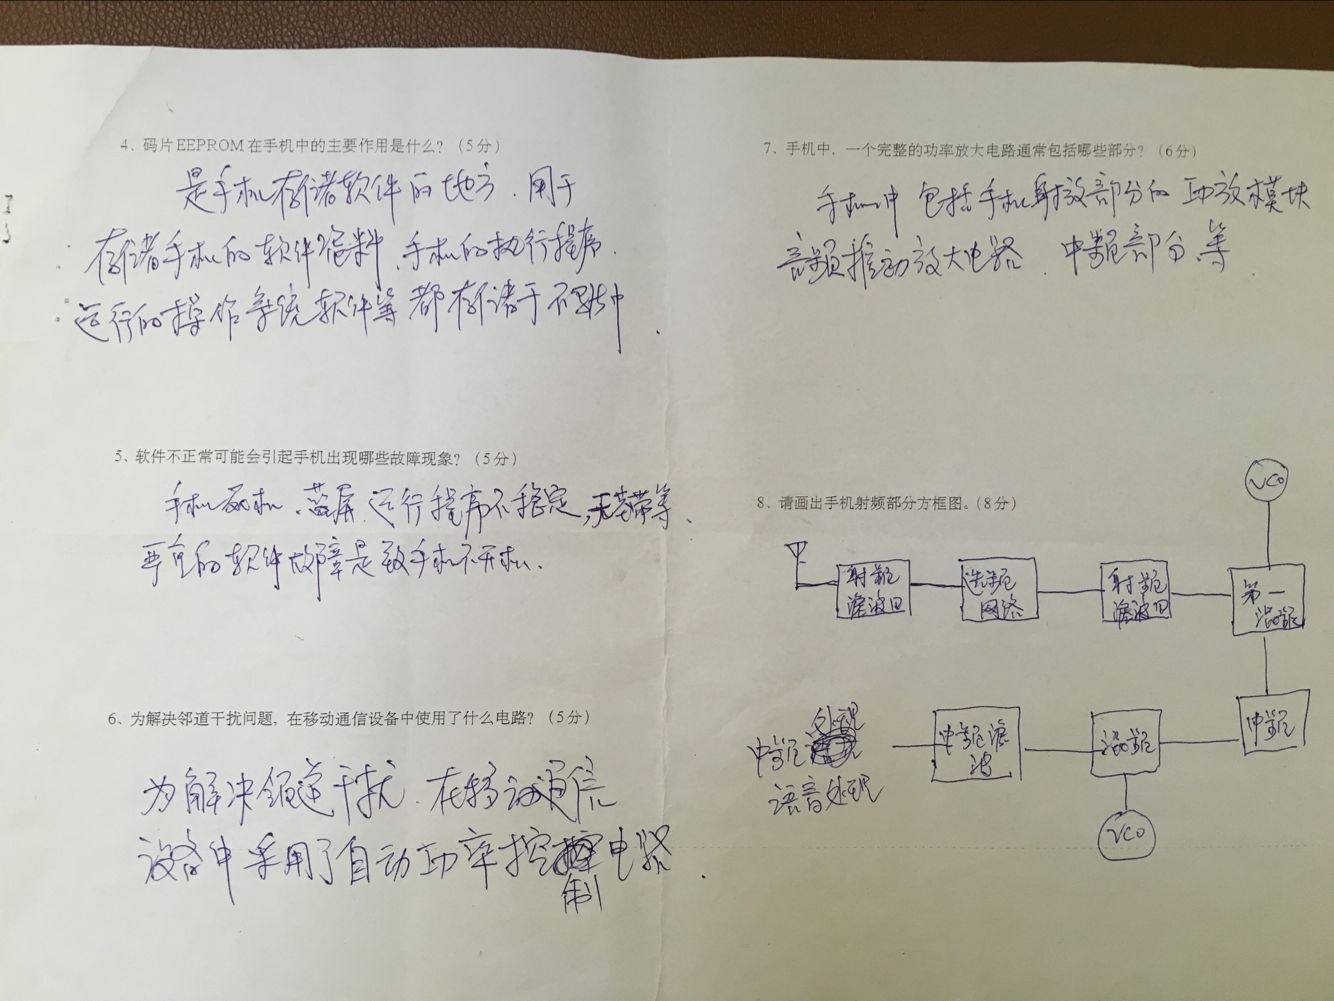 4、码片EEPROM在手机中的主要作用是什么？（5分）
是手机存储软件的地方.用于
存储手机的软件资料、手机的执行程序.
运行的操作系统软件等都存诸于中.
5、软件不正常可能会引起手机出现哪些故障现象？（5分）
手机死机、蓝屏、运行程序不稳定,等、
的软件故障是致手机不开机.
6、为解决邻道干扰问题，在移动通信设备中使用了什么电路？（5分）
为解决邻道干扰.在移动通信
设备中采用了自动功率控制电路.
7、手机中，一个完整的功率放大电路通常包括哪些部分？（6分）
手机中包括手机射放部分的功放模块
音频推动放大电路.中频部分.等.
8、请画出手机射频部分方框图。（8分）
VCO
射频
滤波四
选频
网络
射频
滤波四
第一
混频
中频
混频
中频滤
波
处理
中频
语音处理
VCO